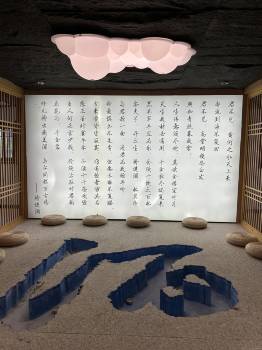 君不见 黄河之水天上来
奔流到海不复回
君不见 高堂明镜悲白发
朝如青丝暮成雪
人生得意须尽欢 莫使金樽空对月
天生我材必有用 千金散尽还复来
烹羊宰牛且为乐 会须一饮三百杯
岑夫子 丹丘生 将进酒 杯莫停
与君歌一曲 请君为我倾耳听
钟鼓馔玉不足贵 但愿长醉不复醒
古来圣贤皆寂寞 惟有饮者留其名
陈王昔时宴平乐 斗酒十千恣欢谑
主人何为言少钱 径须沽取对君酌
五花马 千金裘
呼儿将出换美酒 与尔同销万古愁
——将进酒